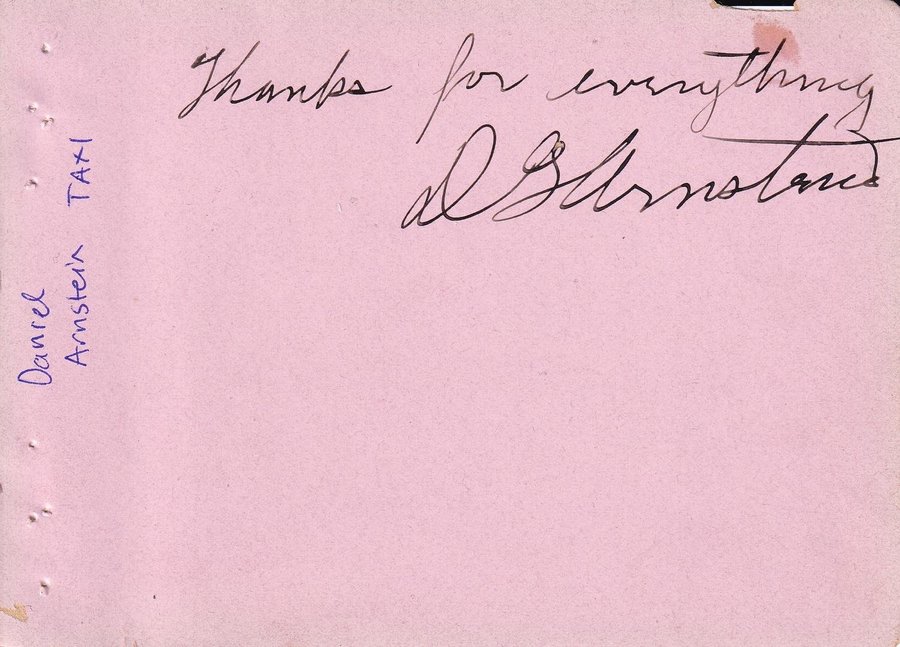 Thanks for everything
D G Arnstein
Daniel
Arnstein TAXI